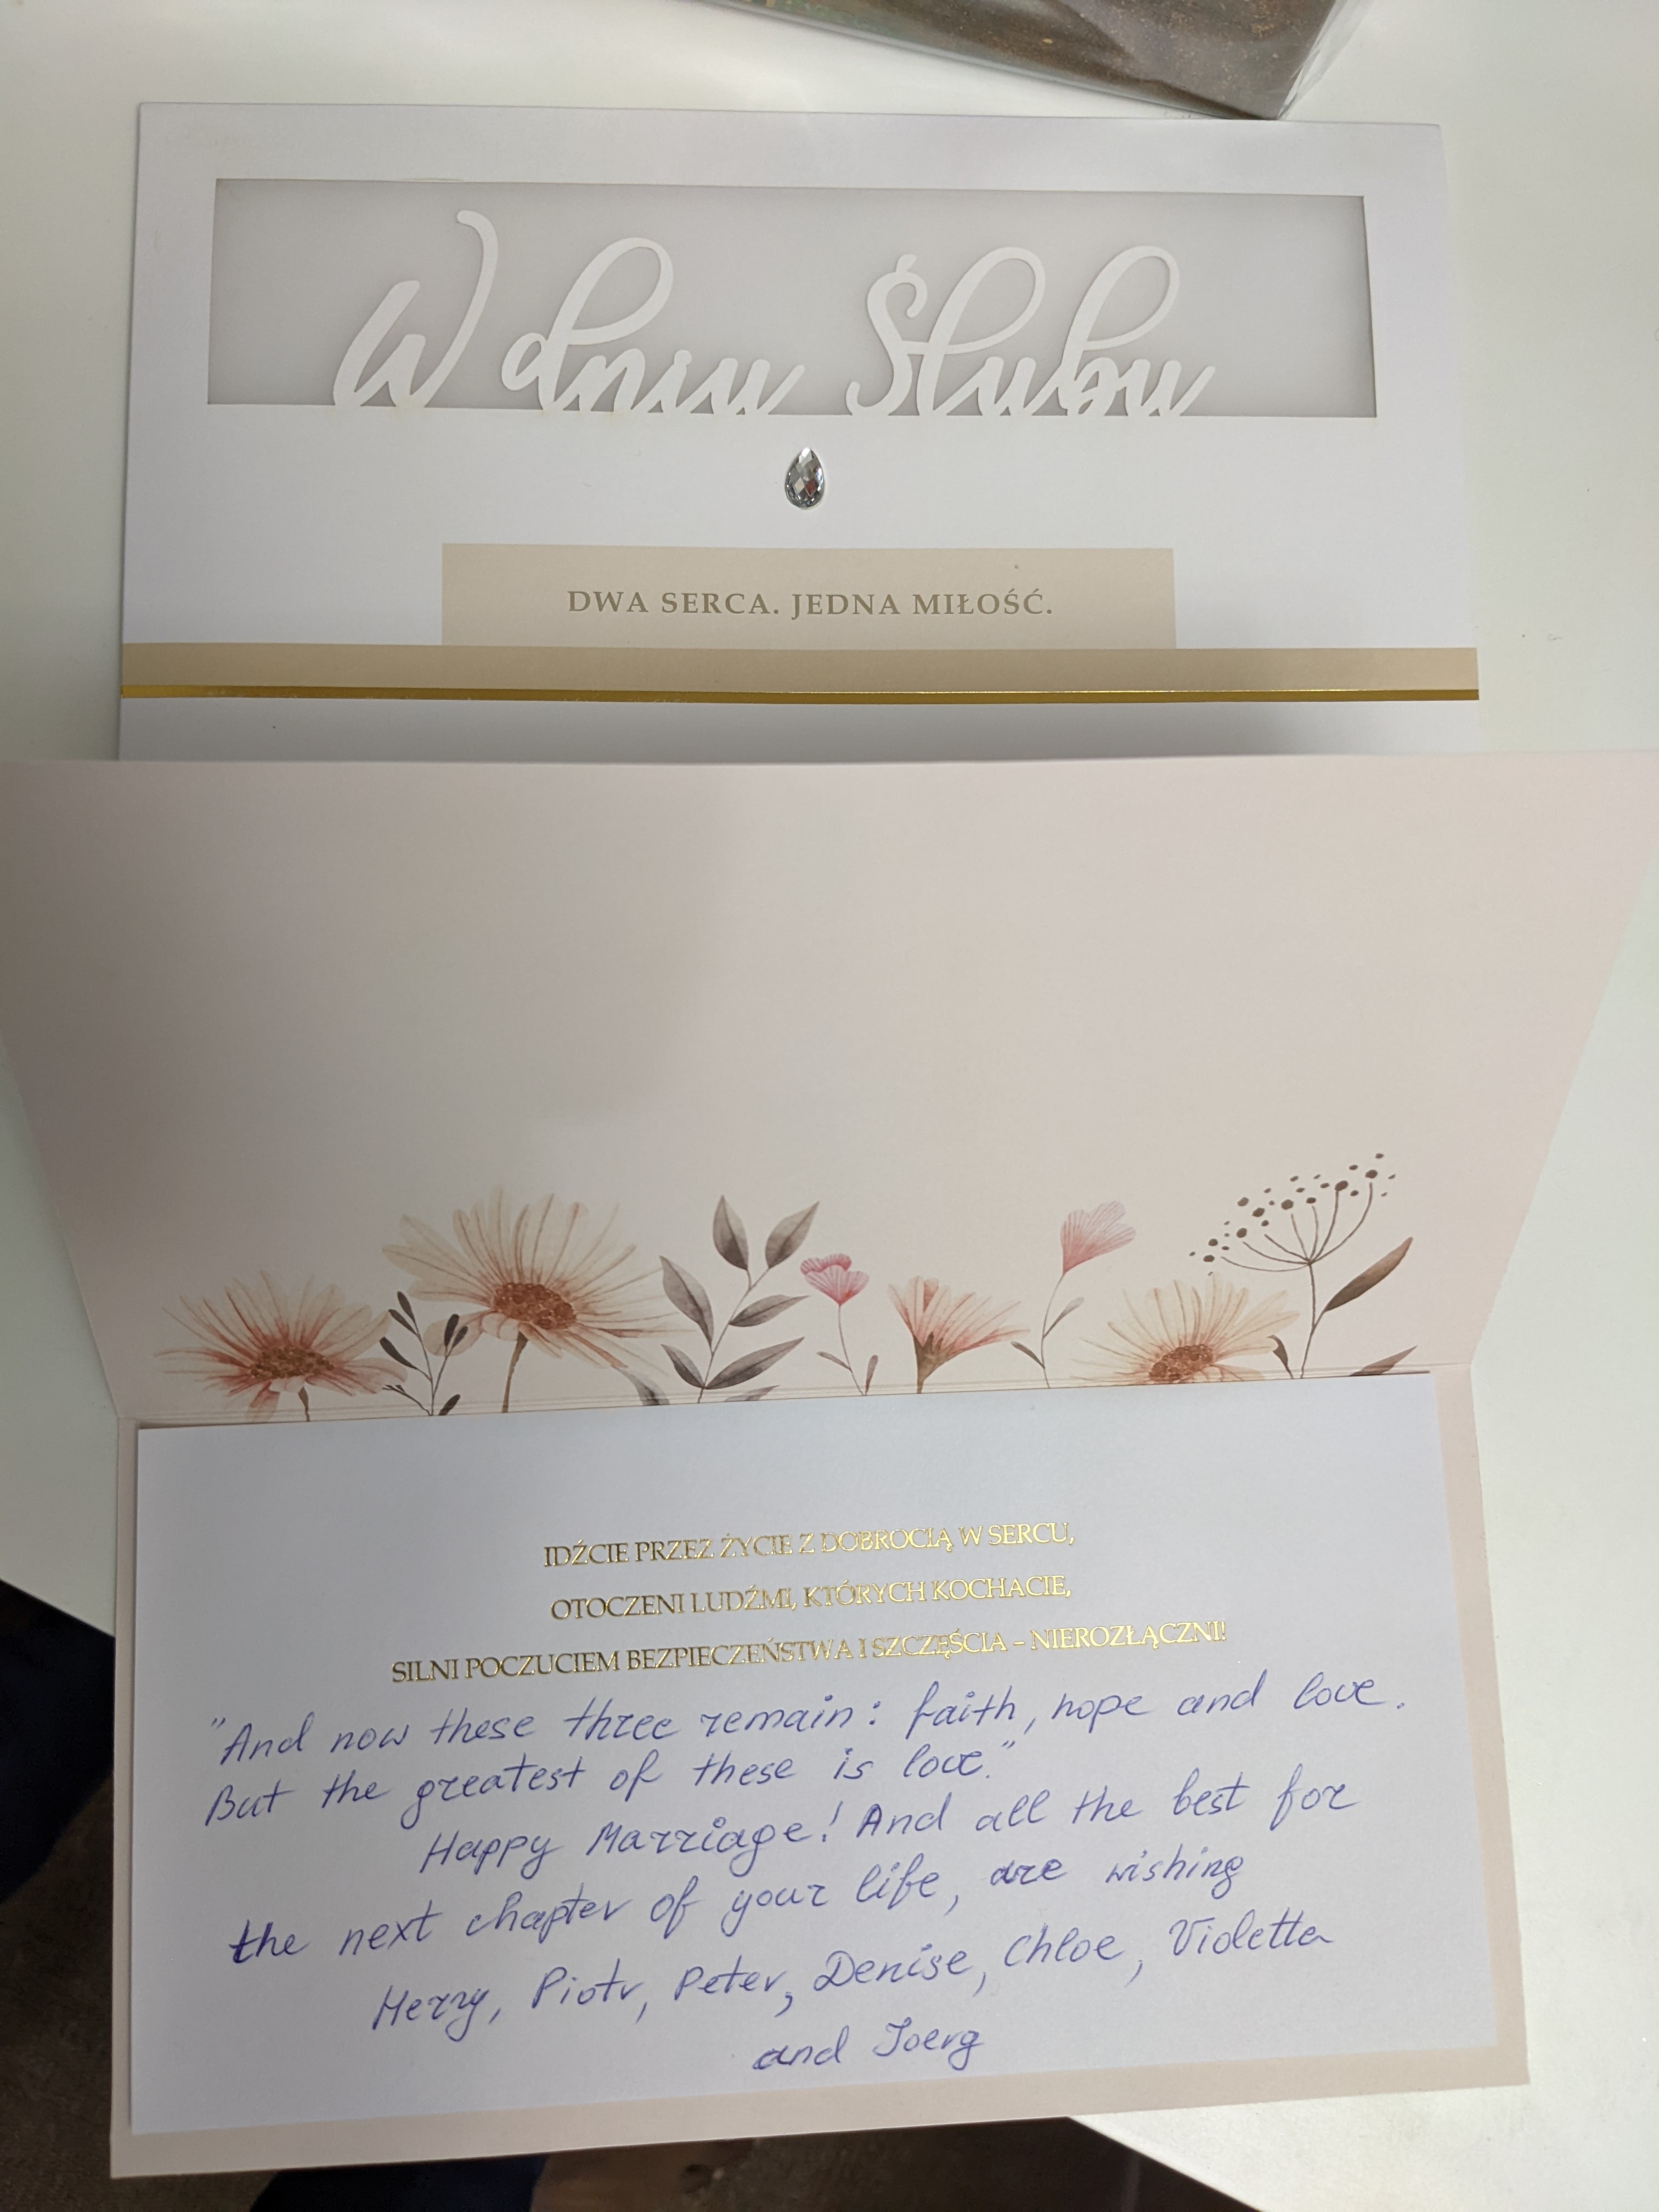 W dniu Ślubu
DWA SERCA. JEDNA MIŁOŚĆ.
IDŹCIE PRZEZ ŻYCIE Z DOBROCIĄ W SERCU,
OTOCZENI LUDŹMI, KTÓRYCH KOCHACIE,
SILNI POCZUCIEM BEZPIECZEŃSTWA I SZCZĘŚCIA – NIEROZŁĄCZNI!
"And now these three remain: faith, hope and love.
But the greatest of these is love."
Happy Marriage! And all the best for
the next chapter of your life, are wishing
Merry, Piotr, Peter, Denise, Chloe, Violetta
and Joerg